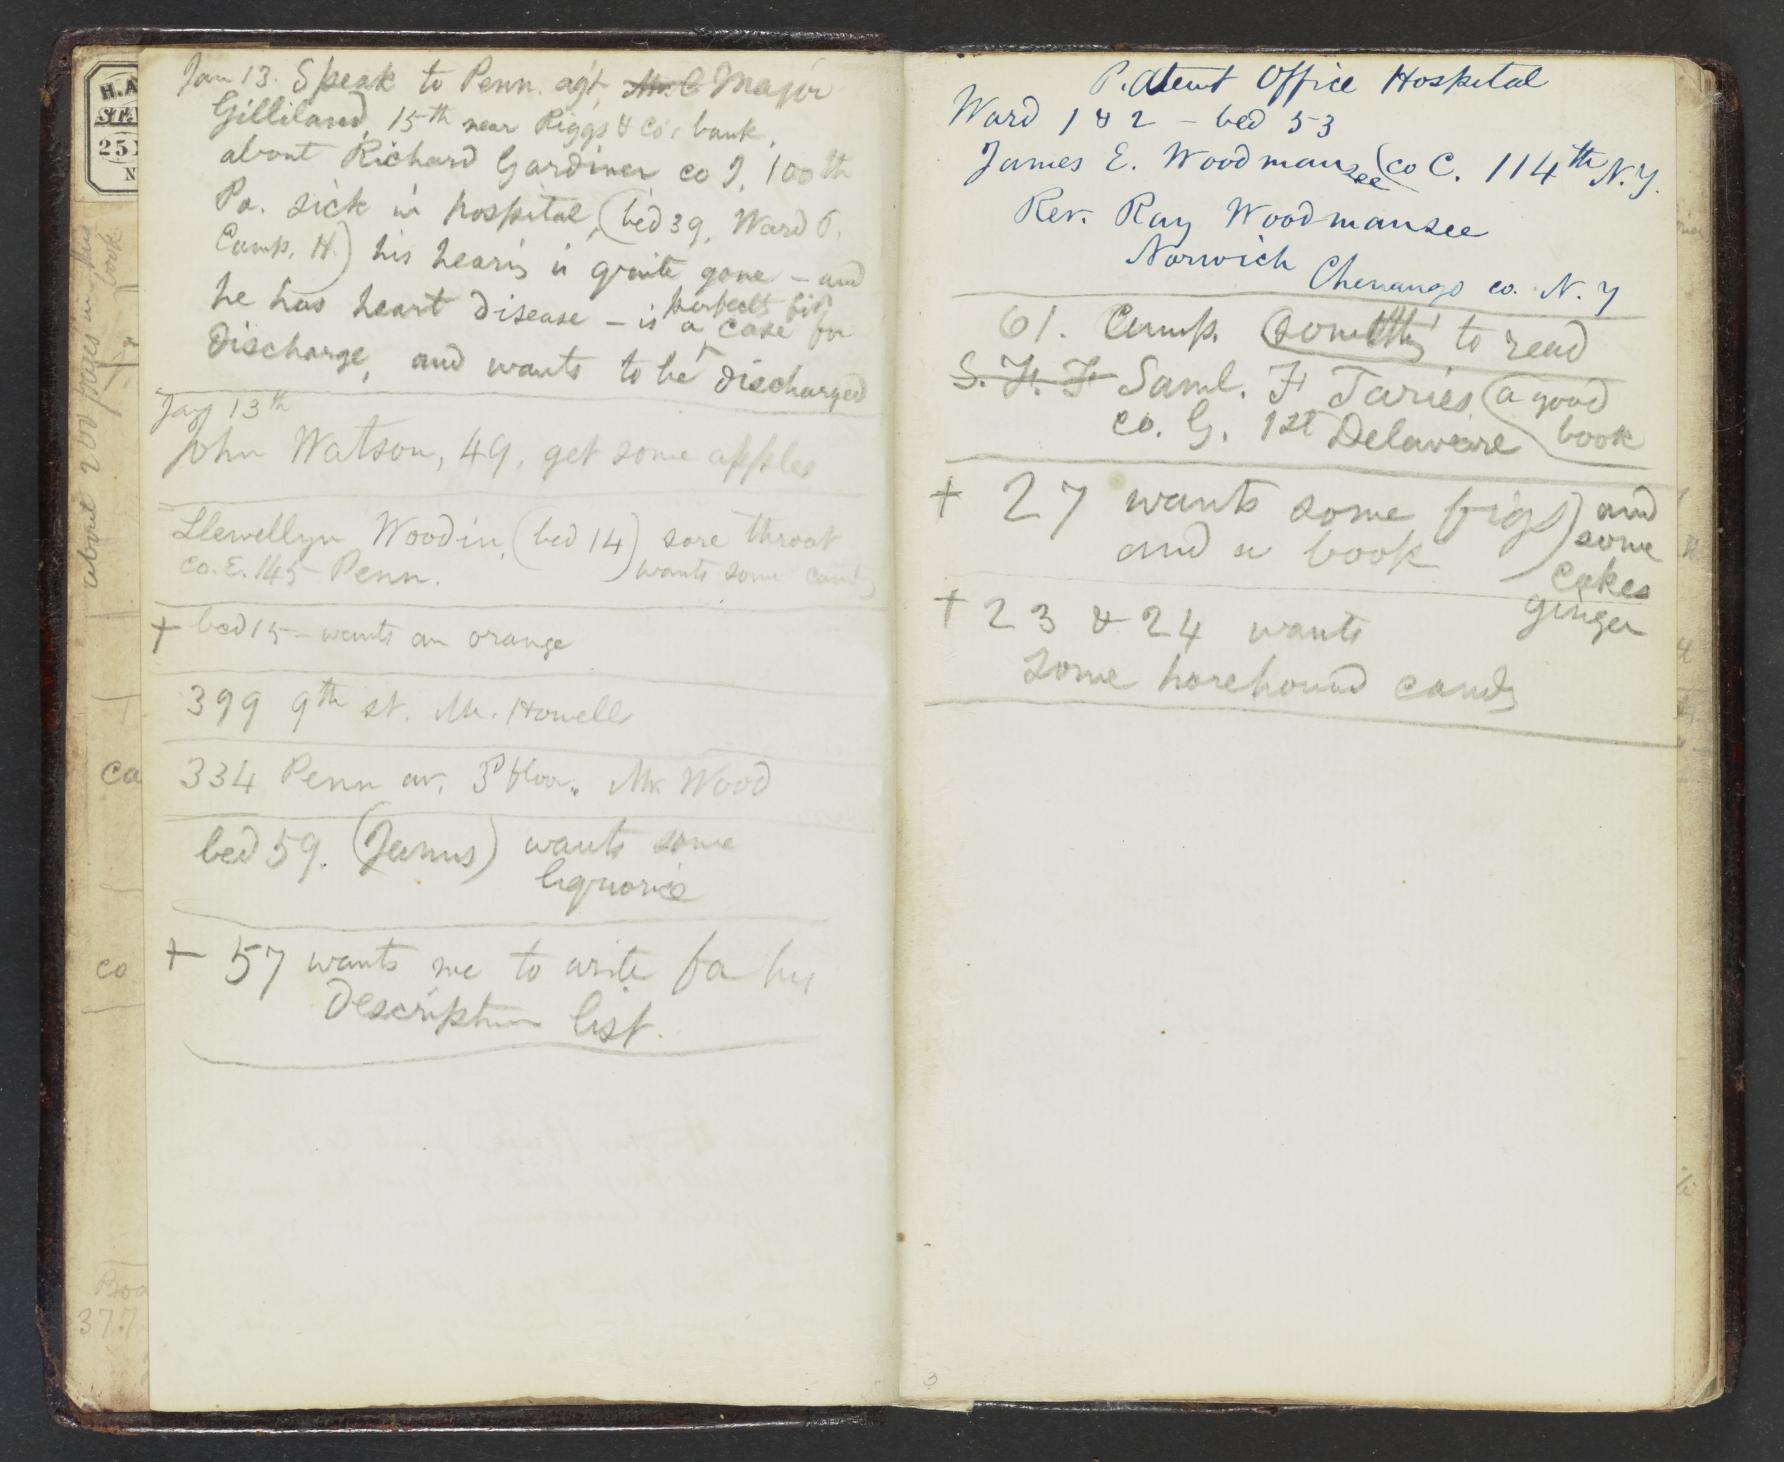 Jan 13. Speak to Penn. agt, Major
Gilliland, 15th near Riggs & Co's bank,
about Richard Gardiner co I, 100th
Pa. sick in hospital, (bed 39, Ward 6,
Camp. H.) his hearing is quite gone – and
he has heart disease – is a perfectly fit case for
discharge, and wants to be discharged
Jan 13th
John Watson, 49, get some apples
Llewellyn Woodin, (bed 14) sore throat
co. E. 145 Penn. wants some candy
+ bed 15 – wants an orange
399 9th st. Mr. Howell
334 Penn av. 3d floor. Mr. Wood
bed 59. (Janus) wants some
liquorice
+ 57 wants me to write for his
Description list.
Patent Office Hospital
Ward 1 & 2 – bed 53
James E. Woodmansee (co C. 114th N.Y.
Rev. Ray Woodmansee
Norwich
Chenango co. N.Y
61. Camp. (something to read
S. F. F Saml. F Taries (a good
co. G. 1st Delaware book
+ 27 wants some figs) and
and a book some
cakes
ginger
+ 23 & 24 wants
some horehound candy
3
about 200 pages in this
book
H.A
251
N
ca
co
Boa
377